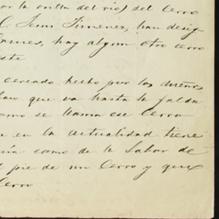 or la orilla del rio, del Cerro
C. Jenni Jimenez, han desig
hay algun otro cerro
este
cercado hecho por los dueños
que va hasta la falda
como se llama ese Cerro
en la actualidad tiene
como de la Labor de
pie de un Cerro y que
Cerro